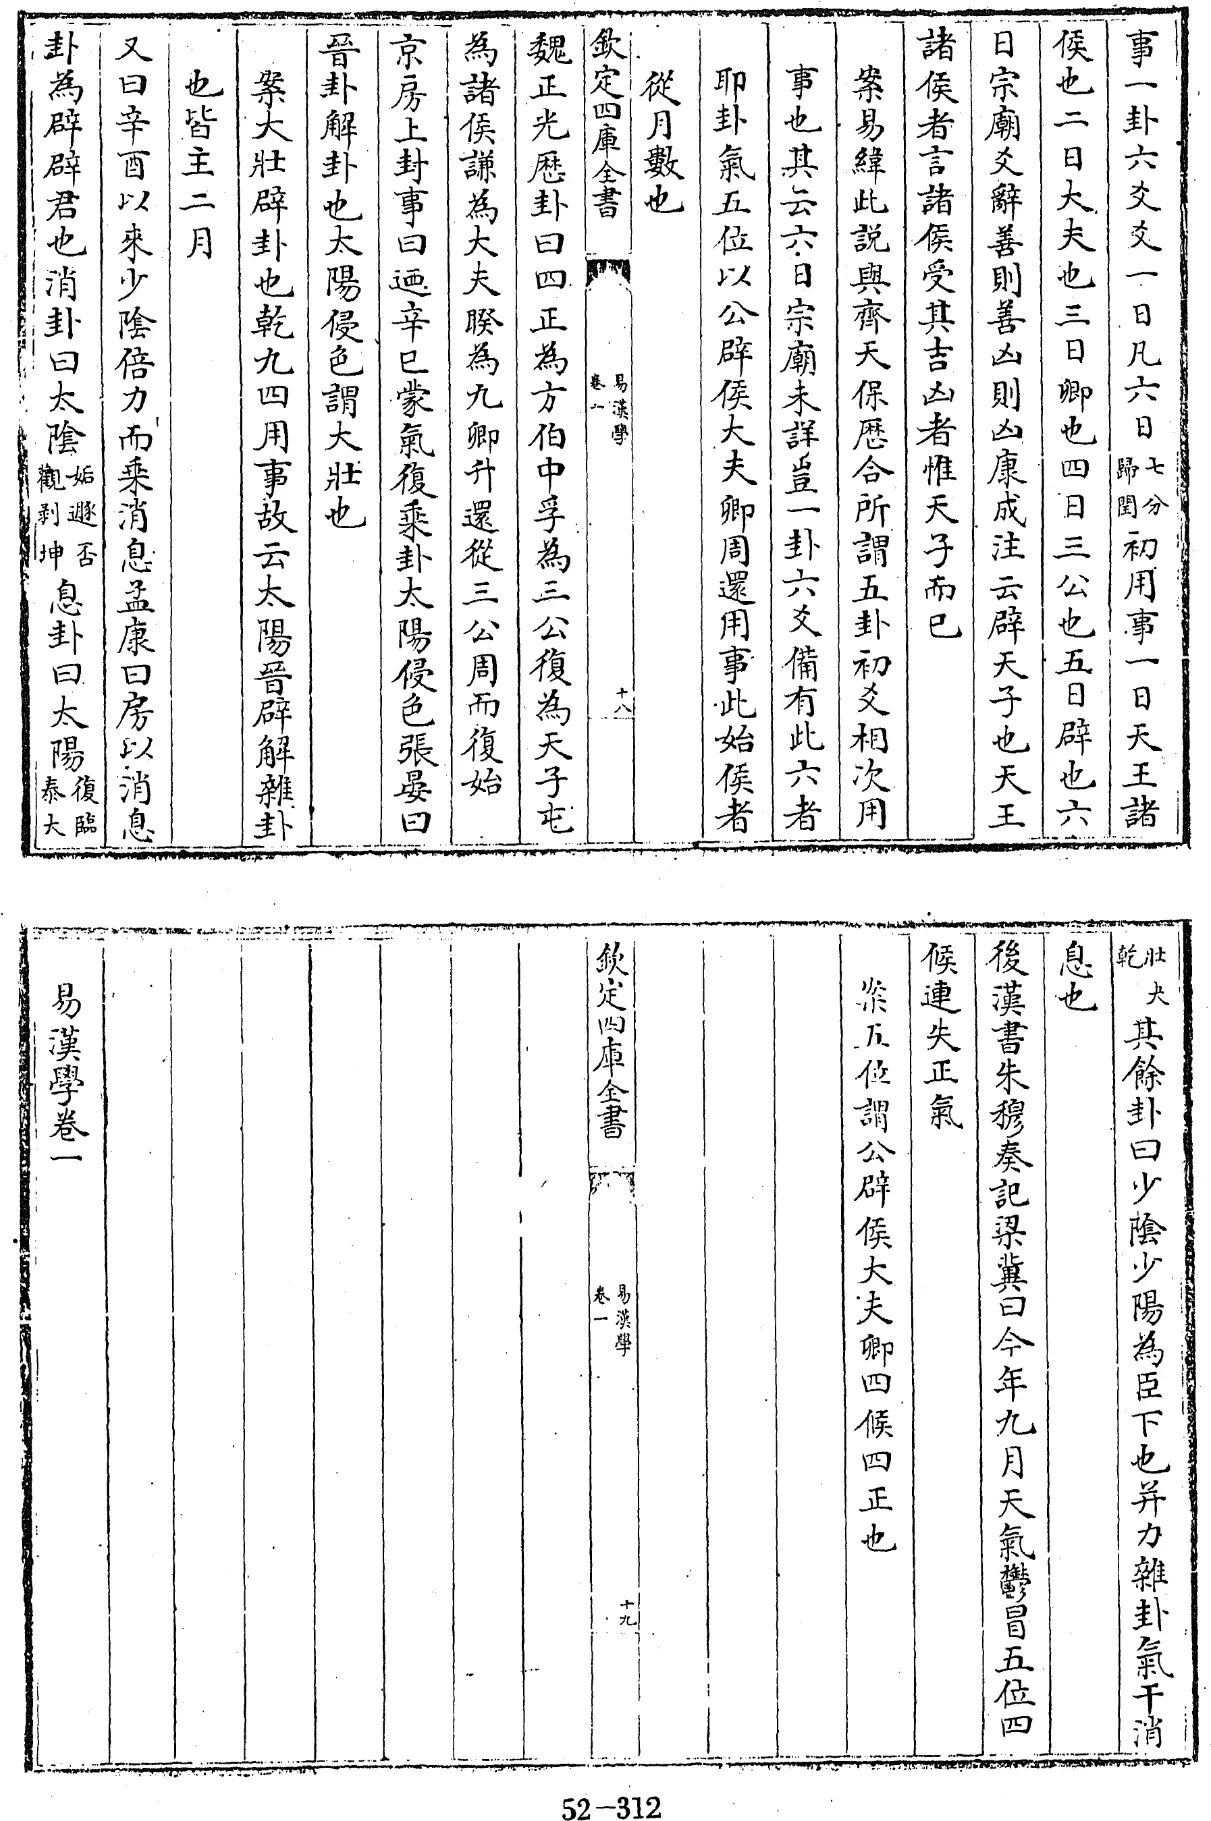 事一卦六爻爻一日凡六日七分歸閏初用事一日天王諸
侯也二日大夫也三日卿也四日三公也五日辟也六
日宗廟爻辭善則善凶則凶康成注云辟天子也天王
諸侯者言諸侯受其吉凶者惟天子而已
案易緯此説與齊天保歷合所謂五卦初爻相次用
事也其云六日宗廟未詳豈一卦六爻備有此六者
耶卦氣五位以公辟侯大夫卿周還用事此始侯者
從月數也
欽定四庫全書
易漢學
卷一
十八
魏正光歷卦曰四正為方伯中孚為三公復為天子屯
為諸侯謙為大夫睽為九卿升還從三公周而復始
京房上封事曰迺辛巳蒙氣復乘卦太陽侵色張晏曰
晉卦解卦也太陽侵色謂大壯也
案大壯辟卦也乾九四用事故云太陽晉辟解雜卦
也皆主二月
又曰辛酉以來少陰倍力而乘消息孟康曰房以消息
卦為辟辟君也消卦曰太陰姤遯否觀剥坤息卦曰太陽復臨泰大
壯夬乾其餘卦曰少陰少陽為臣下也并力雜卦氣干消
息也
後漢書朱穆奏記梁冀曰今年九月天氣鬱冒五位四
候連失正氣
案五位謂公辟侯大夫卿四候四正也
欽定四庫全書
易漢學
卷一
十九
易漢學卷一
52-312